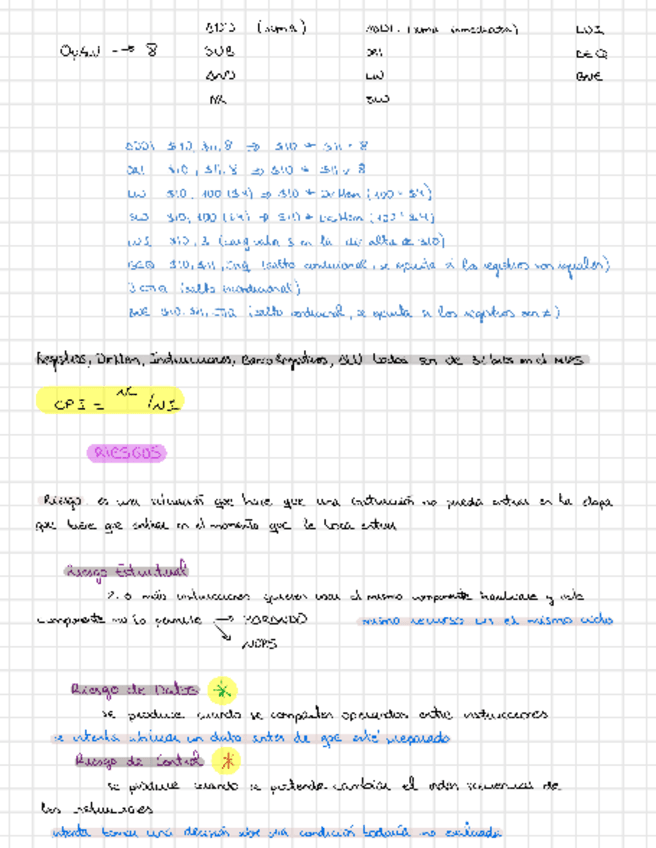 ADD (suma) ADDI (suma inmediata) LUI
8 SUB ORI BEQ
AND LW BNE
SW
ADDI $10, $11, 8 $10 $11 8
ORI $10, $11, 8 $10 $11 8
LW $10, 100 ($4) $10
SW $10, 100 ($4) $10
$10, 3 (carga valor 3 en la alta de $10)
BEQ $10, $11, (salto condicional, se ejecuta si los registros son iguales)
(salto incondicional)
BNE $10, $11, (salto condicional, se ejecuta si los registros son ≠)
Registros, Instrucciones, Banco Registros, ALU todos son de 32 bits en el MIPS
CPI = NC / NI
RIESGOS
Riesgo: es una situación que hace que una instrucción no pueda entrar en la etapa
que tiene que entrar en el momento que le toca entrar
Riesgo Estructural
2 o más instrucciones quieren usar el mismo componente hardware y este
componente no lo permite → PARANDO mismo recurso en el mismo ciclo
NOPS
Riesgo de Datos *
se produce cuando se comparten operandos entre instrucciones
se intenta utilizar un dato antes de que esté preparado
Riesgo de Control *
se produce cuando se pretende cambiar el orden secuencial de
las instrucciones
intenta tomar una decisión sobre una condición todavía no evaluada